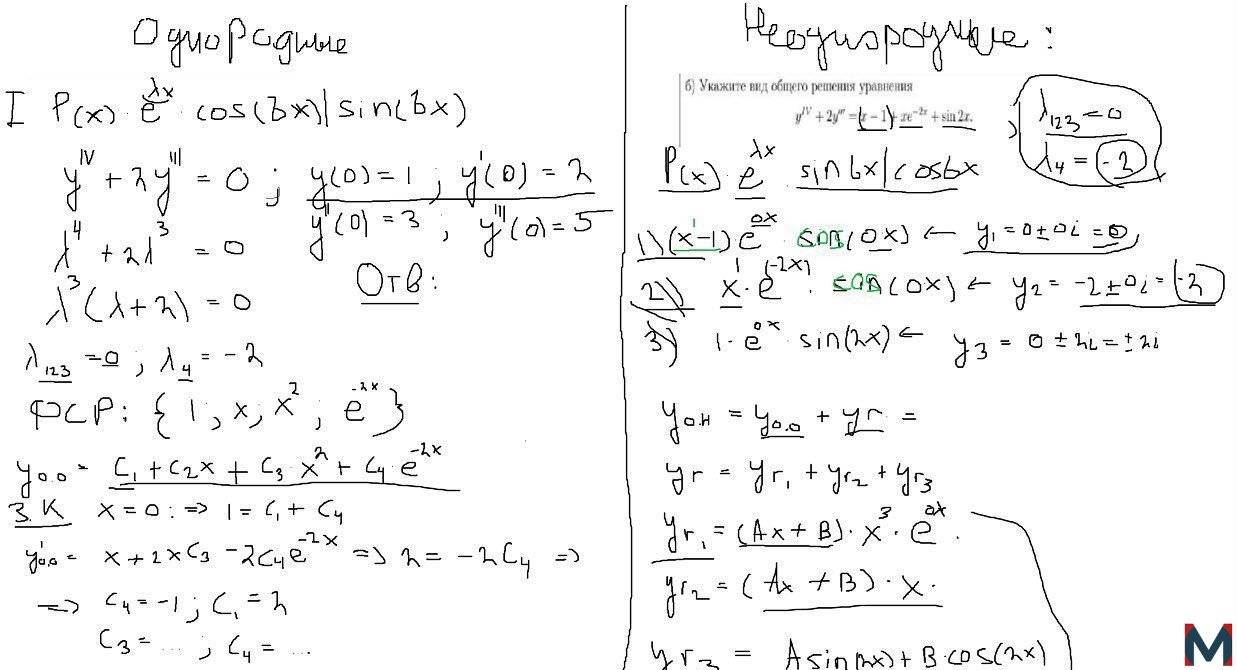 Однородные
I P(x) · e^λx · cos(bx)|sin(bx)
y^IV + 2y^III = 0 ; y(0) = 1 ; y'(0) = 2
y''(0) = 3 ; y'''(0) = 5
λ^4 + 2λ^3 = 0
Отв:
λ^3 (λ + 2) = 0
λ_123 = 0 ; λ_4 = -2
ФСР: { 1, x, x^2 ; e^-2x }
y_o.o = C_1 + C_2x + C_3 · x^2 + C_4 · e^-2x
З.К x = 0 : => 1 = C_1 + C_4
y'_o.o = x + 2xC_3 - 2C_4e^-2x => 2 = -2C_4 =>
=> C_4 = -1 ; C_1 = 2
C_3 = ... ; C_4 = ...
Неоднородные :
б) Укажите вид общего решения уравнения
y^IV + 2y''' = (x − 1) + xe^−2x + sin 2x.
λ_123 = 0
λ_4 = -2
P(x) e^λx sin bx|cos bx
1) (x^1-1) e^0x · cos(0x) ← y_1 = 0 ± 0i = 0
2) x^1 · e^(-2x) · cos(0x) ← y_2 = -2 ± 0i = -2
3) 1 · e^0x · sin(2x) ← y_3 = 0 ± 2i = ± 2i
y_o.н = y_o.o + y_r =
y_r = y_r1 + y_r2 + y_r3
y_r1 = (Ax + B) · x^3 · e^0x .
y_r2 = (Ax + B) · x ·
y_r3 = A sin(2x) + B · cos(2x)
M